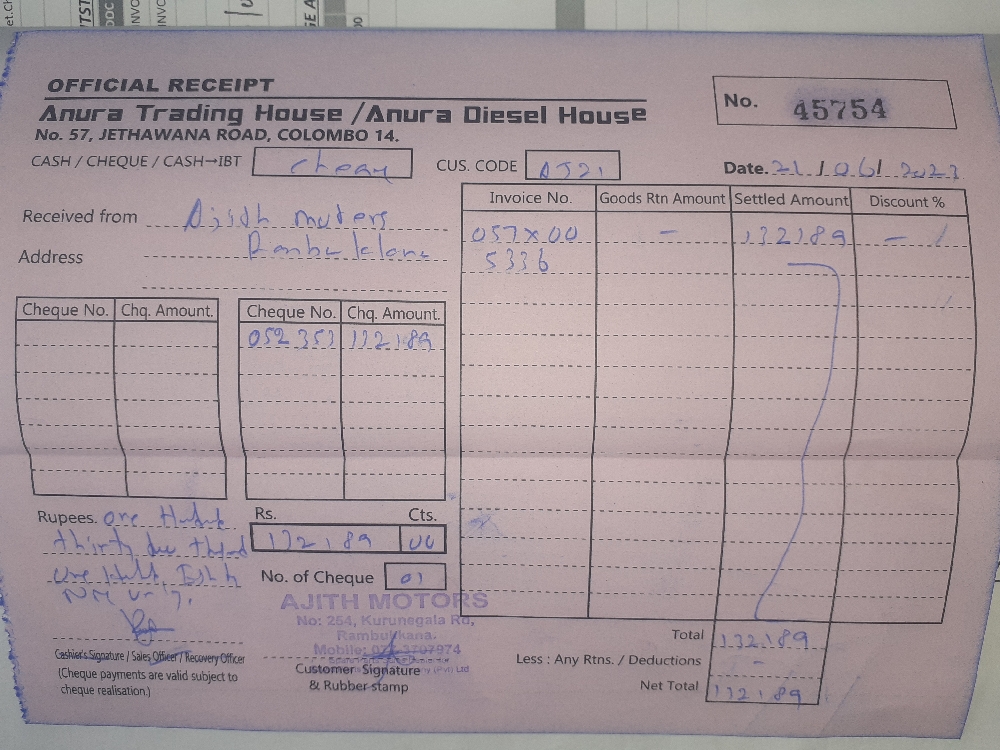 OFFICIAL RECEIPT
Anura Trading House /Anura Diesel House
No. 57, JETHAWANA ROAD, COLOMBO 14.
No. 45754
CASH / CHEQUE / CASH→IBT
CUS. CODE AJ21
Date. 21/06/2023
Received from Ajith motors
Address
Invoice No. Goods Rtn Amount Settled Amount Discount %
057X00 - 132189 -
5336
Cheque No. Chq. Amount. Cheque No. Chq. Amount.
052353 132189
Rupees. one
thirty
Rs. Cts.
132189 00
No. of Cheque 01
AJITH MOTORS
No: 254, Kurunegala Rd,
Rambukkana.
Cashier's Signature / Sales Officer / Recovery Officer
(Cheque payments are valid subject to
cheque realisation.)
Customer Signature
& Rubber stamp
Total 132189
Less : Any Rtns. / Deductions -
Net Total 132189